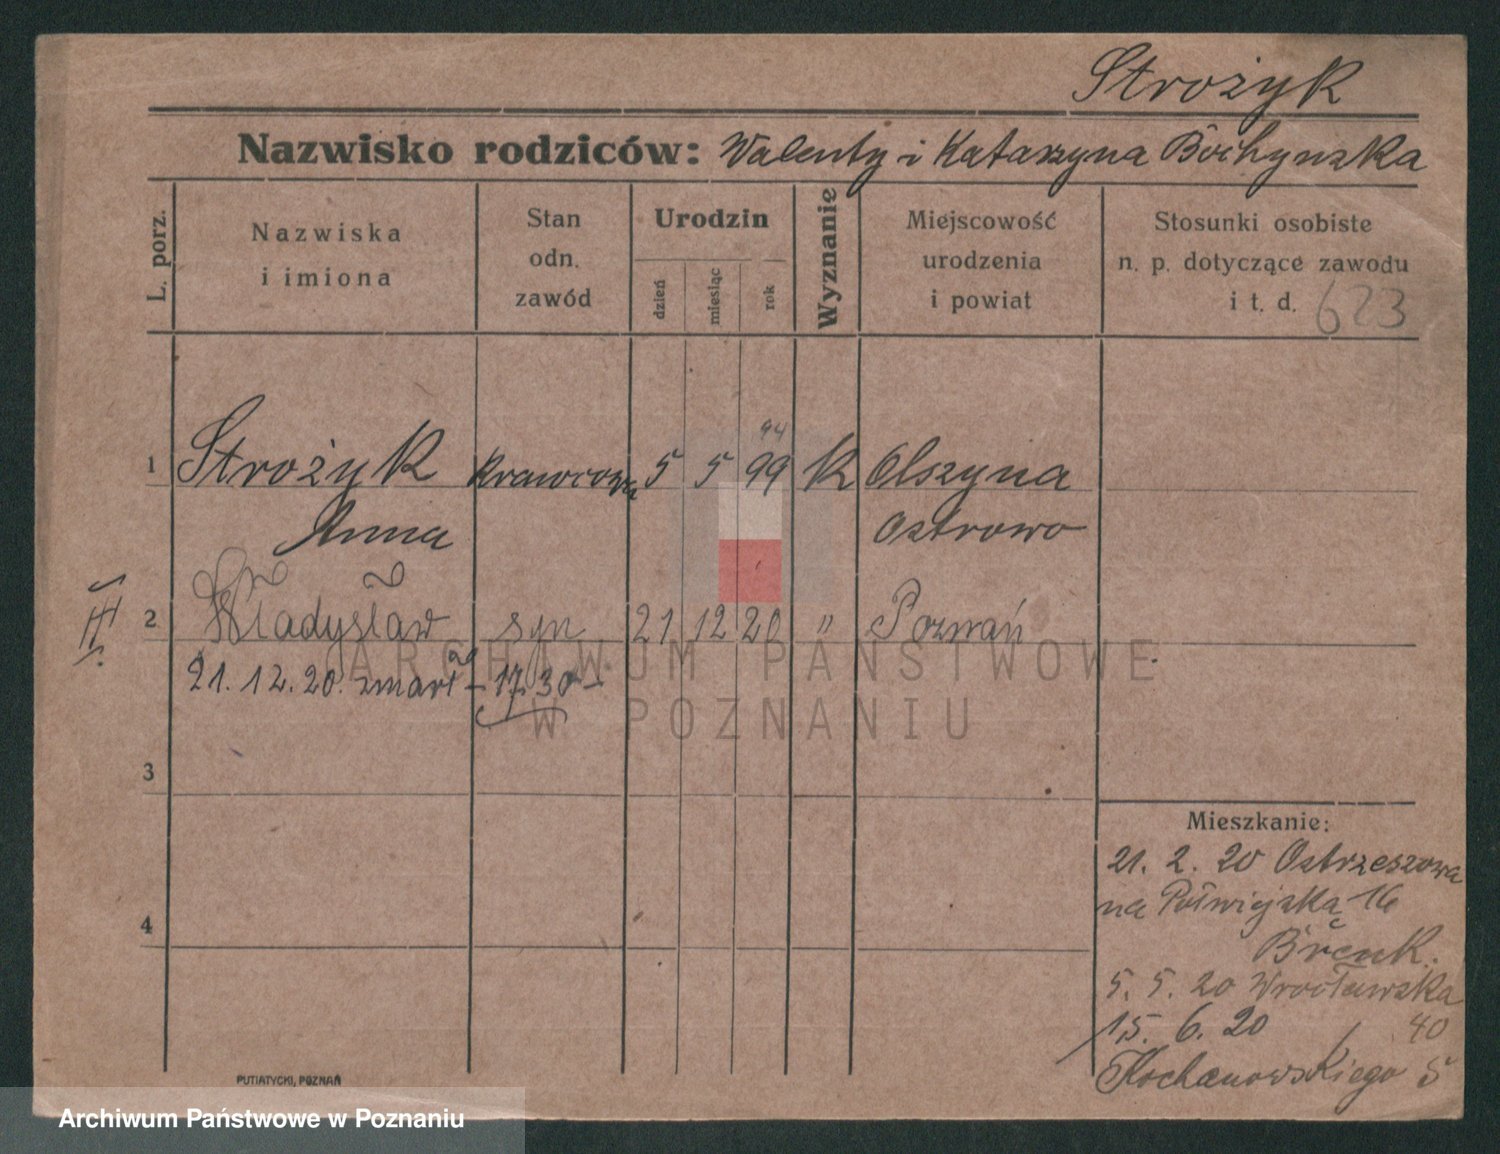 Strożyk
Nazwisko rodziców: Walenty i Katarzyna Bochynska
L. porz.
Nazwiska
i imiona
Stan
odn.
zawód
Urodzin
dzień
miesiąc
rok
Wyznanie
Miejscowość
urodzenia
i powiat
Stosunki osobiste
n. p. dotyczące zawodu
i t. d. 623
94
1 Strożyk Krawcowa 5 5 99 K Olszyna
Anna Ostrowo
2 Władysław syn 21 12 20 " Poznań
21. 12. 20. zmarł - 17. 30 -
3
4
Mieszkanie:
21. 2. 20 Ostrzeszowa
na Półwiejską 16
Brenk.
5. 5. 20 Wrocławska
15. 6. 20 40
Kochanowskiego 5
PUTIATYCKI, POZNAŃ
ARCHIWUM PAŃSTWOWE
W POZNANIU
Archiwum Państwowe w Poznaniu